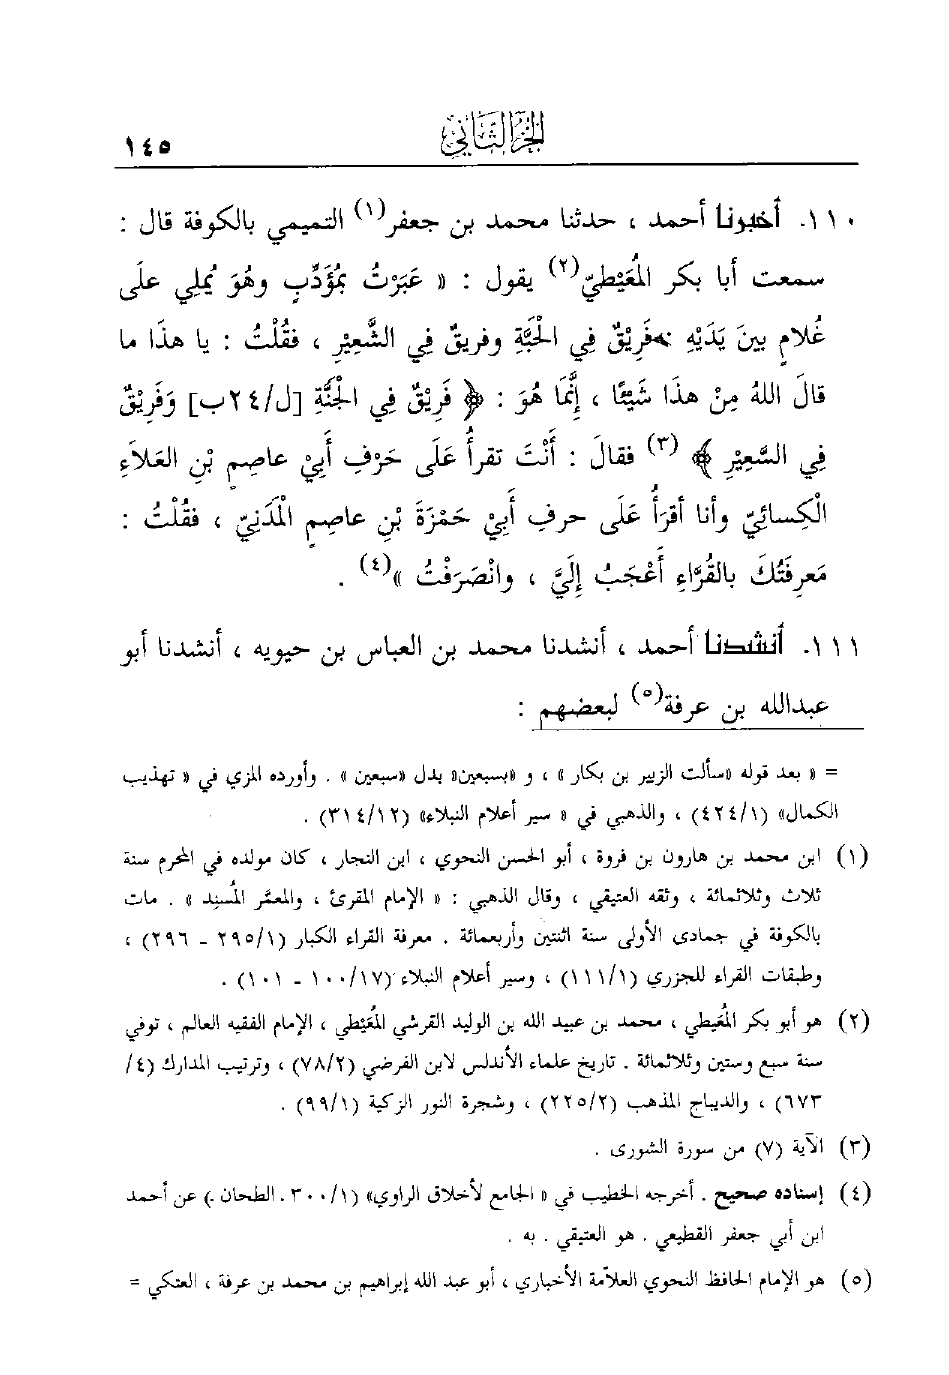 الجزء الثاني ١٤٥
١١٠. أخبرنا أحمد ، حدثنا محمد بن جعفر(١) التميمي بالكوفة قال :
سمعت أبا بكر المُعَيْطيّ(٢) يقول : « عَبَرْتُ بمُؤَدِّبٍ وهُوَ يُملِي علَى
غُلامٍ بينَ يَدَيْهِ :«فَرِيْقٌ فِي الْحَبَّةِ وفريقٌ فِي الشَّعِيْرِ ، فقُلْتُ : يا هذَا ما
قالَ اللهُ مِنْ هذَا شَيْئًا ، إِنَّمَا هُوَ : ﴿ فَرِيْقٌ فِي الْجَنَّةِ [ل/٢٤ب] وَفَرِيْقٌ
فِي السَّعِيْرِ ﴾ (٣) فقالَ : أَنْتَ تقرأُ عَلَى حَرْفِ أَبِيْ عاصِمِ بْنِ العَلاَءِ
الْكِسائِيّ وأنا أقرَأُ عَلَى حرفِ أَبِيْ حَمْزَةَ بْنِ عاصِمٍ الْمَدَنِيّ ، فقُلْتُ :
مَعرِفَتُكَ بالقُرَّاءِ أَعْجَبُ إِلَيَّ ، وانْصَرَفْتُ »(٤) .
١١١. أنشدنا أحمد ، أنشدنا محمد بن العباس بن حيويه ، أنشدنا أبو
عبدالله بن عرفة(٥) لبعضهم :
= « بعد قوله «سألت الزبير بن بكار» ، و «بسبعين» بدل «سبعين» . وأورده المزي في « تهذيب
الكمال» (٤٢٤/١) ، والذهبي في « سير أعلام النبلاء» (٣١٤/١٢) .
(١) ابن محمد بن هارون بن فروة ، أبو الحسن النحوي ، ابن النجار ، كان مولده في المحرم سنة
ثلاث وثلاثمائة ، وثقه العتيقي ، وقال الذهبي : « الإمام المقرئ ، والمعمَّر المُسنِد » . مات
بالكوفة في جمادى الأولى سنة اثنتين وأربعمائة . معرفة القراء الكبار (٢٩٥/١ - ٢٩٦) ،
وطبقات القراء للجزري (١١١/١) ، وسير أعلام النبلاء (١٠٠/١٧ - ١٠١) .
(٢) هو أبو بكر المُعَيطي ، محمد بن عبيد الله بن الوليد القرشي المُعَيْطي ، الإمام الفقيه العالم ، توفي
سنة سبع وستين وثلاثمائة . تاريخ علماء الأندلس لابن الفرضي (٧٨/٢) ، وترتيب المدارك (٤/
٦٧٣) ، والديباج المذهب (٢٢٥/٢) ، وشجرة النور الزكية (٩٩/١) .
(٣) الآية (٧) من سورة الشورى .
(٤) إسناده صحيح . أخرجه الخطيب في « الجامع لأخلاق الراوي» (٣٠٠/١ . الطحان .) عن أحمد
ابن أبي جعفر القطيعي . هو العتيقي . به .
(٥) هو الإمام الحافظ النحوي العلاّمة الأخباري ، أبو عبد الله إبراهيم بن محمد بن عرفة ، العتكي =